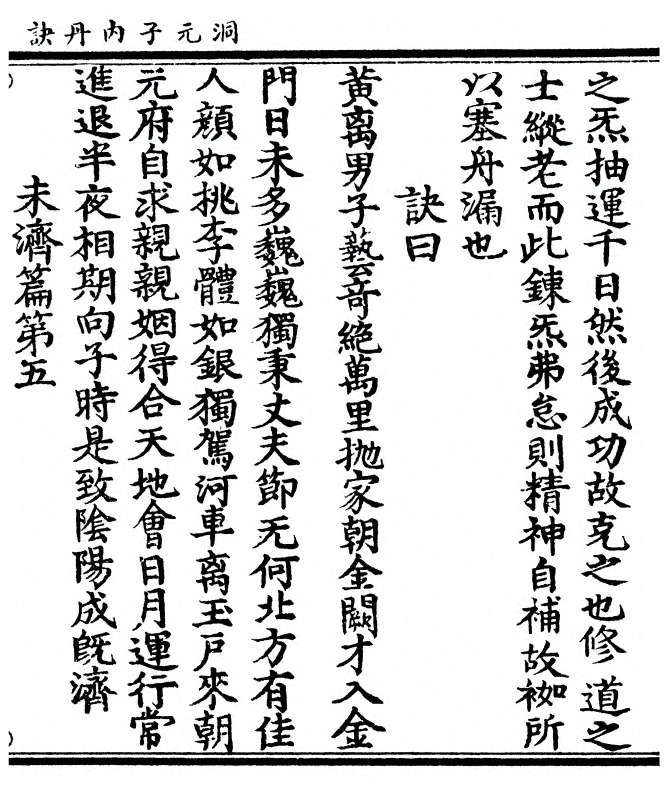 洞元子內丹訣
之炁抽運千日然後成功故克之也修道之
士縱老而此鍊炁弗怠則精神自補故袽所
以塞舟漏也
訣曰
黃离男子藝竒絶萬里抛家朝金闕才入金
門日未多巍巍獨秉丈夫節无何北方有佳
人顔如挑李體如銀獨駕河車离玉戶來朝
元府自求親親姻得合天地會日月運行常
進退半夜相期向子時是致隂陽成旣濟
未濟篇第五